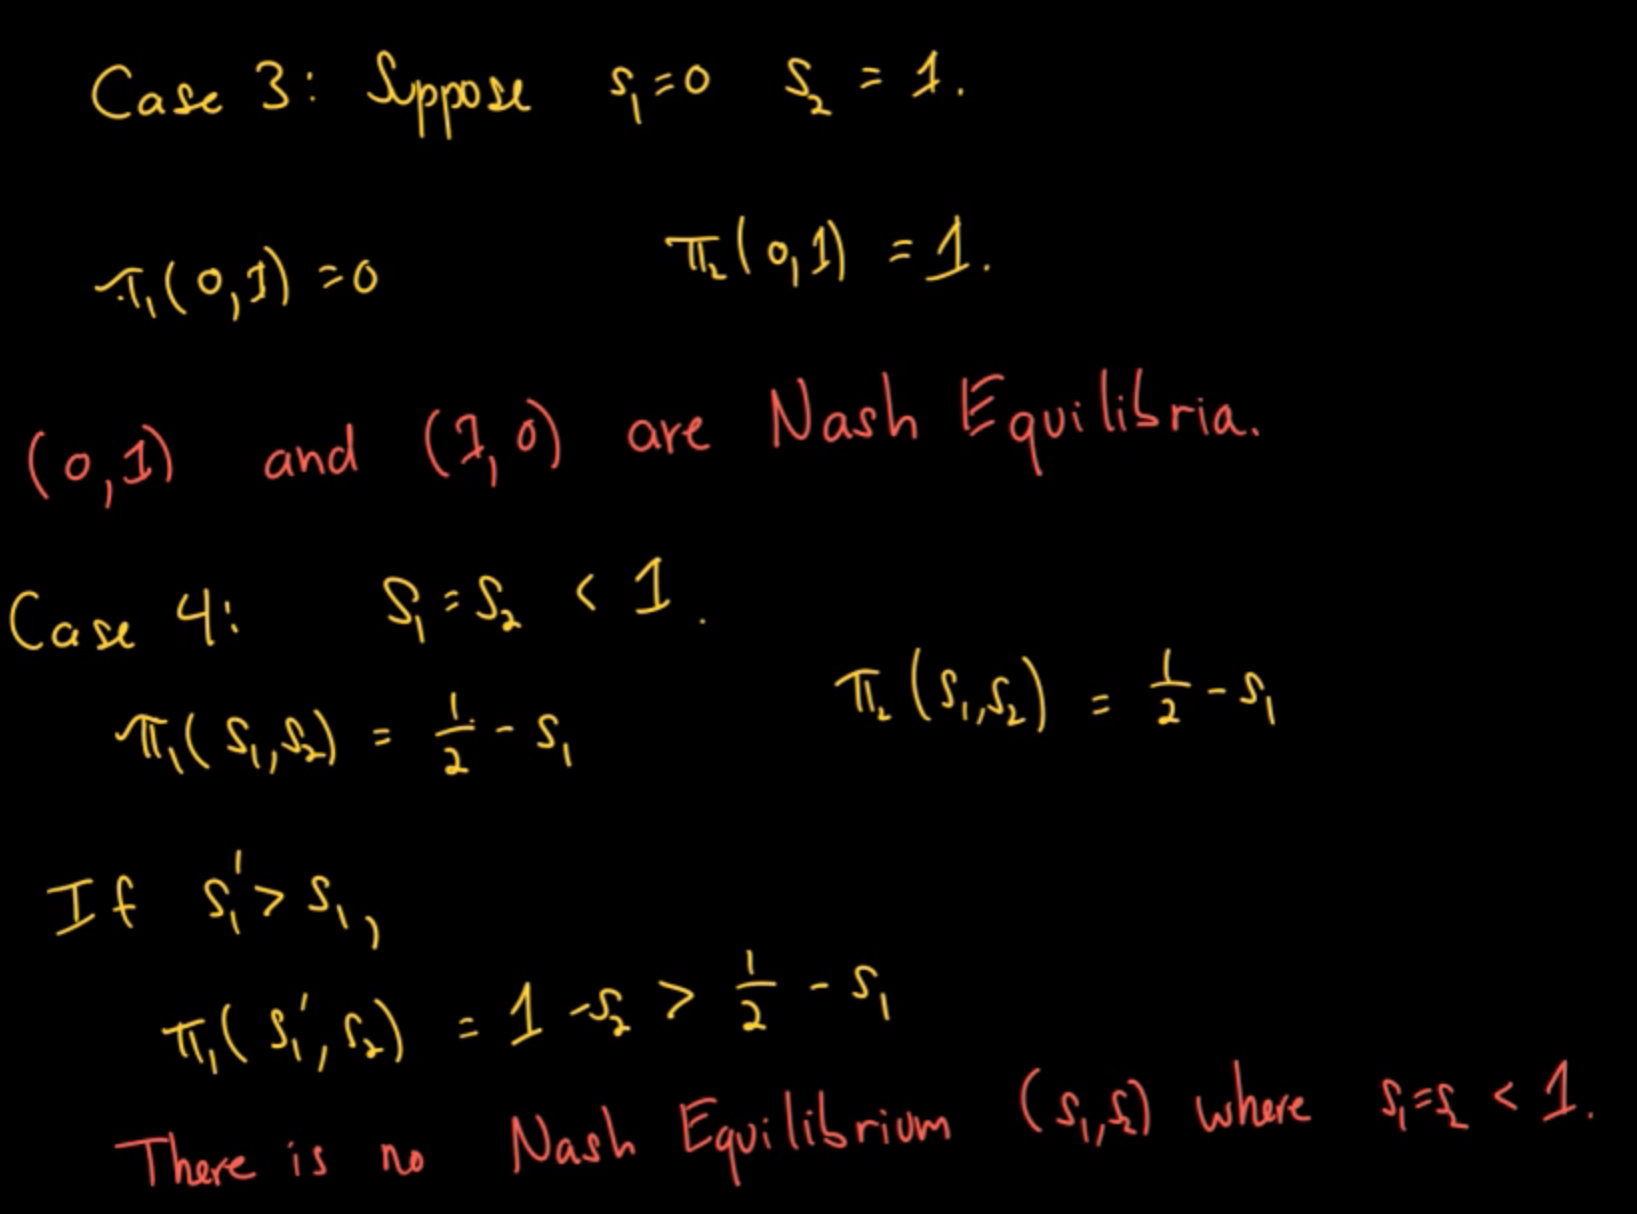 Case 3: Suppose s₁=0 s₂ = 1.
π₁(0,1) =0 π₂(0,1) = 1.
(0,1) and (1,0) are Nash Equilibria.
Case 4: s₁=s₂ < 1.
π₁(s₁,s₂) = 1/2 - s₁ π₂(s₁,s₂) = 1/2 - s₁
If s₁'> s₁,
π₁(s₁',s₂) = 1 -s₂ > 1/2 - s₁
There is no Nash Equilibrium (s₁,s₂) where s₁=s₂ < 1.